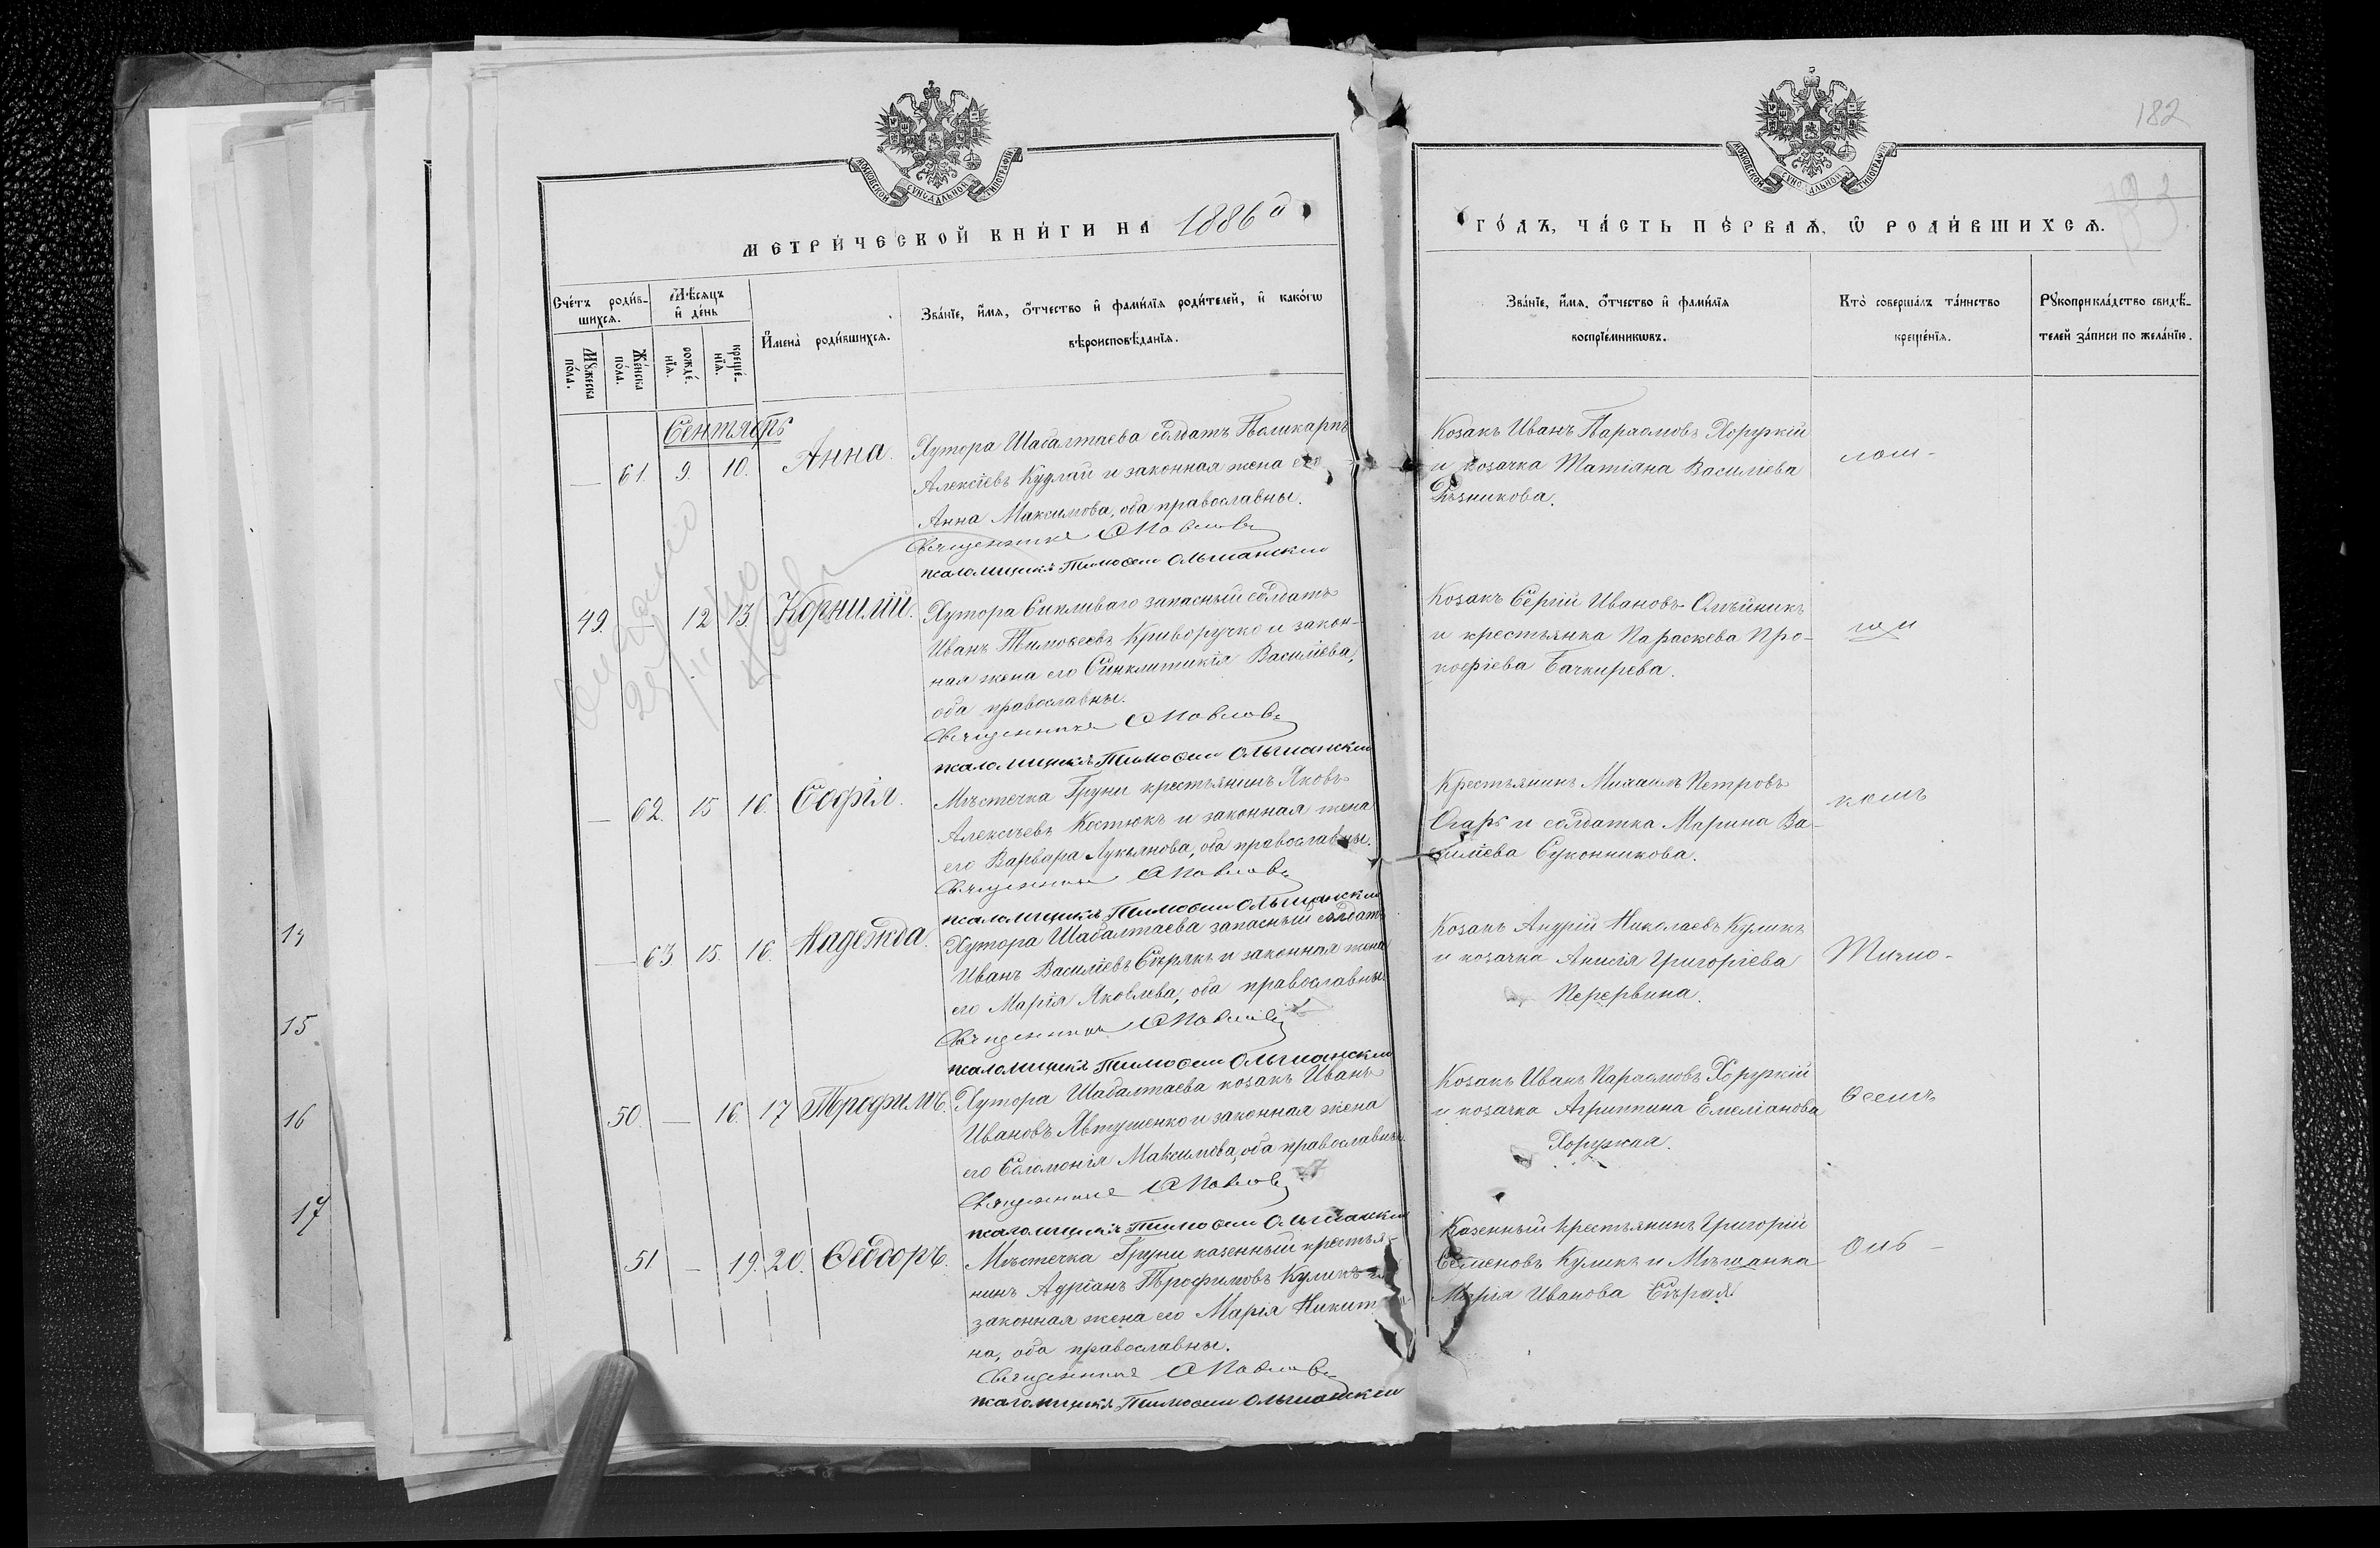 182
МОСКОВСКОЙ СУНОДАЛЬНОЙ ТИПОГРАФІИ
МОСКОВСКОЙ СУНОДАЛЬНОЙ ТИПОГРАФІИ
МЕТРИ́ЧЕСКОЙ КНИ́ГИ НА 1886й
ГО́ДЪ, ЧА́СТЬ ПЕ́РВАѦ, Ѿ РОДИ́ВШИХСѦ.
Сче́тъ роди́в-
шихсѧ.
Мꙋ́жеска
по́ла.
Же́нска
по́ла.
Мѣ́сѧцъ
и҆ де́нь
рожде́-
нїѧ.
креще́-
нїѧ.
И҆мена̀ роди́вшихсѧ.
Зва́нїе, и҆́мѧ, ѻ҆́тчество и҆ фами́лїѧ роди́телей, и҆ како́гѡ
вѣроисповѣ́данїѧ.
Зва́нїе, и҆́мѧ, ѻ҆́тчество и҆ фами́лїѧ
воспрїе́мникѡвъ.
Кто̀ соверша́лъ та́инство
креще́нїѧ.
Рꙋкоприкла́дство свидѣ́-
телей за́писи по жела́нїю.
Сентябрь
— 61. 9. 10. Анна.
Хутора Шабалтаева солдатъ Поликарпъ
Алексіевъ Кудлай и законная жена его
Анна Максимова, оба православны.
Священникъ С Павловъ
псаломщикъ Тимофей Ольшанскій
Козакъ Иванъ Парѳамовъ Хоружій
и козачка Татіана Василіева
Рѣзникова.
49. — 12 13. Корнилій.
Хутора Сипливаго запасный солдатъ
Иванъ Тимоѳеевъ Криворучко и закон-
ная жена его Синклитикія Василіева,
оба православны.
Священникъ С Павловъ
псаломщикъ Тимофей Ольшанскій
Козакъ Сергій Ивановъ Олѣйникъ
и крестьянка Параскева Про-
кофіева Бачкирева.
— 62. 15 16. Софія.
Мѣстечка Груни крестьянинъ Яковъ
Алексѣевъ Костюкъ и законная жена
его Варвара Лукьянова, оба православны.
Священникъ С Павловъ
псаломщикъ Тимофей Ольшанскій
Крестьянинъ Михаилъ Петровъ
и солдатка Марина Ва-
силіева Суконникова.
— 63 15. 16. Надежда.
Хутора Шабалтаева запасный солдатъ
Иванъ Василіевъ Сѣрякъ и законная жена
его Марія Яковлева, оба православны.
Священникъ С Павловъ
псаломщикъ Тимофей Ольшанскій
Козакъ Андрій Николаевъ Куликъ
и козачка Анисія Григоріева
Перервина.
50. — 16. 17 Трофимъ.
Хутора Шабалтаева козакъ Иванъ
Ивановъ Явтушенко и законная жена
его Соломонія Максимова, оба православны.
Священникъ С Павловъ
псаломщикъ Тимофей Ольшанскій
Козакъ Иванъ Парѳамовъ Хоружій
и козачка Агриппина Емеліанова
Хоружая.
51 — 19. 20. Ѳеодоръ.
Мѣстечка Груни казенный крестья-
нинъ Адріанъ Трофимовъ Куликъ и
законная жена его Марія Никит-
на, оба православны.
Священникъ С Павловъ
псаломщикъ Тимофей Ольшанскій
Казенный крестьянинъ Григорій
Семеновъ Куликъ и Мѣщанка
Марія Иванова Сѣрая.
14
15
16
17